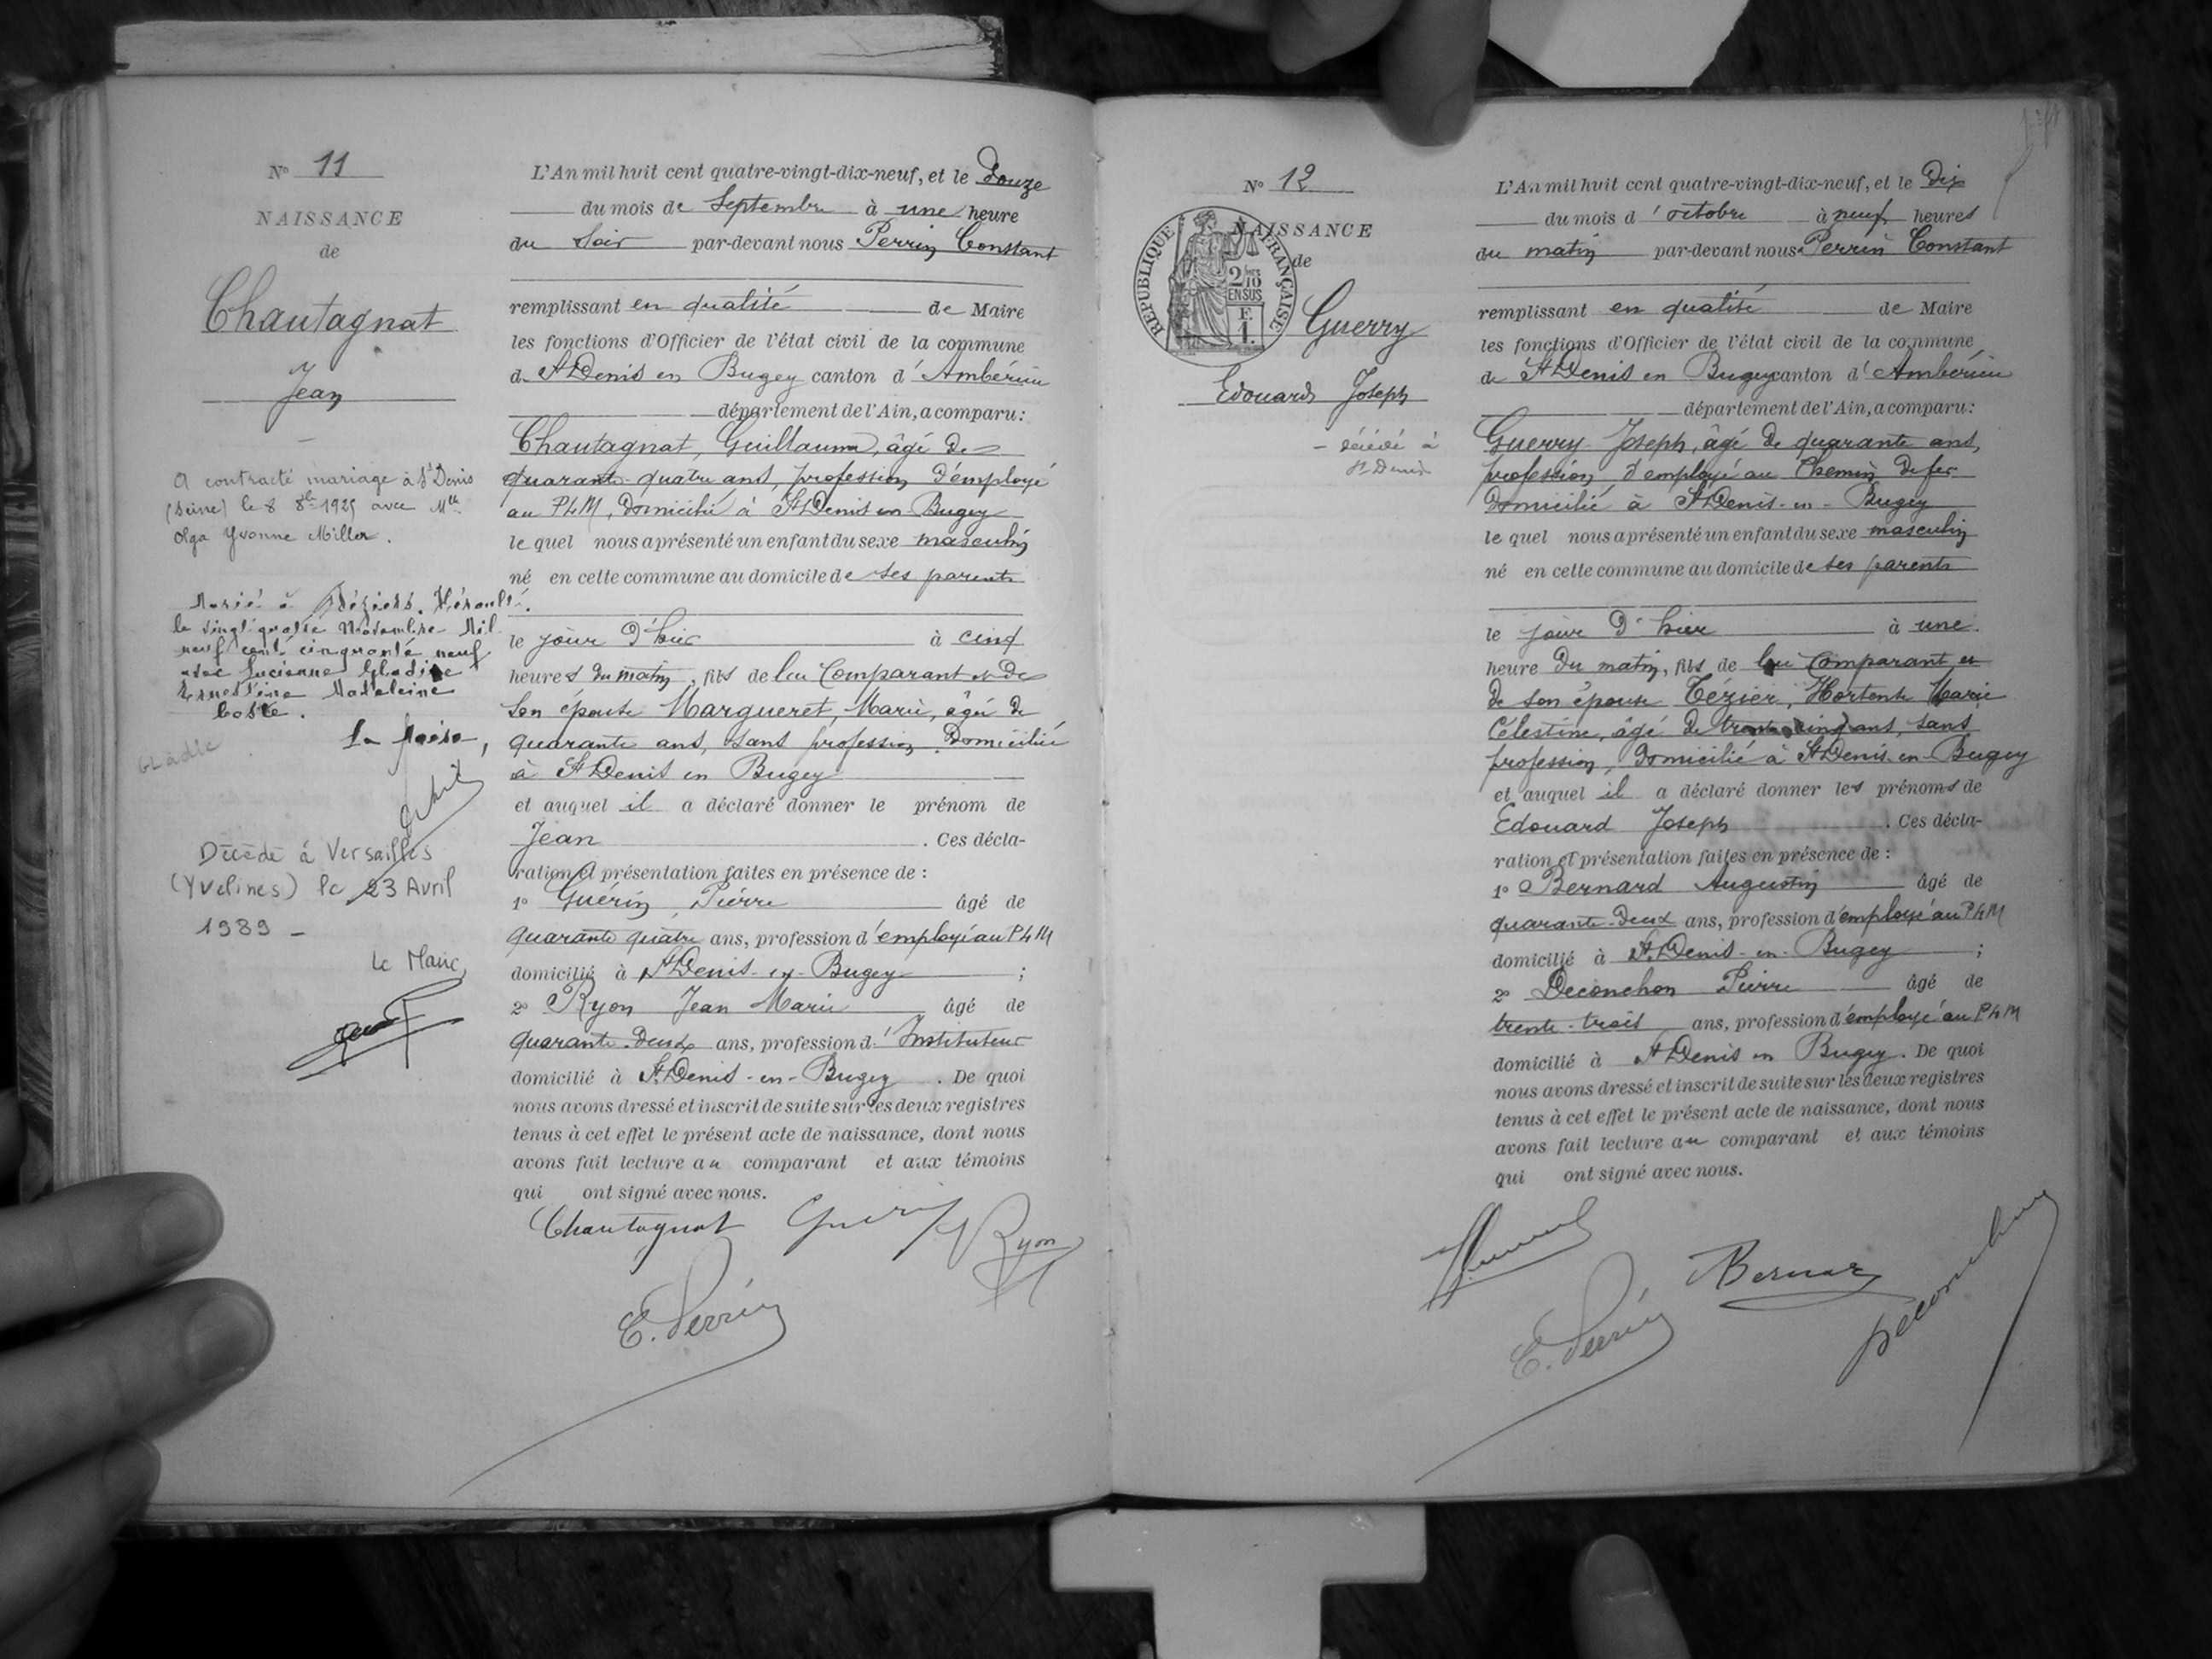 N° 11
NAISSANCE
de
Chautagnat
Jean
A contracté mariage à St Denis
(Seine) le 8 8bre 1925 avec Mlle
Olga Yvonne Miller.
Marié à Béziers. Hérault.
le vingt quatre Novembre Mil
neuf cent cinquante neuf
avec Lucienne Gladie
Ernestine Madeleine
Coste.
Le Maire,
GLadie
Décédé à Versailles
(Yvelines) le 23 Avril
1989 -
Le Maire,
L'An mil huit cent quatre-vingt-dix-neuf, et le douze
du mois de Septembre à une heure
du soir par-devant nous Perrin Constant
remplissant en qualité de Maire
les fonctions d'Officier de l'état civil de la commune
de St Denis en Bugey canton d'Ambérieu
département de l'Ain, a comparu:
Chautagnat, Guillaume, âgé de
quarante-quatre ans, profession d'employé
au PLM, domicilié à St Denis en Bugey
le quel nous a présenté un enfant du sexe masculin
né en cette commune au domicile de ses parents
le jour d'hier à cinq
heures du matin, fils de lui Comparant et de
son épouse Margueret, Marie, âgée de
quarante ans, sans profession, domiciliée
à St Denis en Bugey
et auquel il a déclaré donner le prénom de
Jean. Ces décla-
ration et présentation faites en présence de :
1° Guérin, Pierre âgé de
quarante quatre ans, profession d'employé au PLM
domicilié à St Denis-en-Bugey ;
2° Ryon Jean Marie âgé de
quarante-deux ans, profession d'Instituteur
domicilié à St Denis-en-Bugey. De quoi
nous avons dressé et inscrit de suite sur les deux registres
tenus à cet effet le présent acte de naissance, dont nous
avons fait lecture au comparant et aux témoins
qui ont signé avec nous.
Chautagnat Guérin Ryon
C. Perrin
N° 12
NAISSANCE
de
RÉPUBLIQUE FRANÇAISE
2/10
EN SUS
F.
1.
Guerry
Edouard Joseph
- décédé à
St Denis
L'An mil huit cent quatre-vingt-dix-neuf, et le Dix
du mois d'octobre à neuf heures
du matin par-devant nous Perrin Constant
remplissant en qualité de Maire
les fonctions d'Officier de l'état civil de la commune
de St Denis en Bugey canton d'Ambérieu
département de l'Ain, a comparu:
Guerry Joseph, âgé de quarante ans,
profession d'employé au Chemin de fer
domicilié à St Denis-en-Bugey
le quel nous a présenté un enfant du sexe masculin
né en cette commune au domicile de ses parents
le jour d'hier à une
heure du matin, fils de lui Comparant et
de son épouse Tézier, Hortense Marie
Célestine, âgé de trente cinq ans, sans
profession, domicilié à St Denis en Bugey
et auquel il a déclaré donner les prénoms de
Edouard Joseph. Ces décla-
ration et présentation faites en présence de :
1° Bernard Augustin âgé de
quarante-deux ans, profession d'employé au PLM
domicilié à St Denis-en-Bugey ;
2° Deconchon Pierre âgé de
trente-trois ans, profession d'employé au PLM
domicilié à St Denis en Bugey. De quoi
nous avons dressé et inscrit de suite sur les deux registres
tenus à cet effet le présent acte de naissance, dont nous
avons fait lecture au comparant et aux témoins
qui ont signé avec nous.
Bernard
C. Perrin